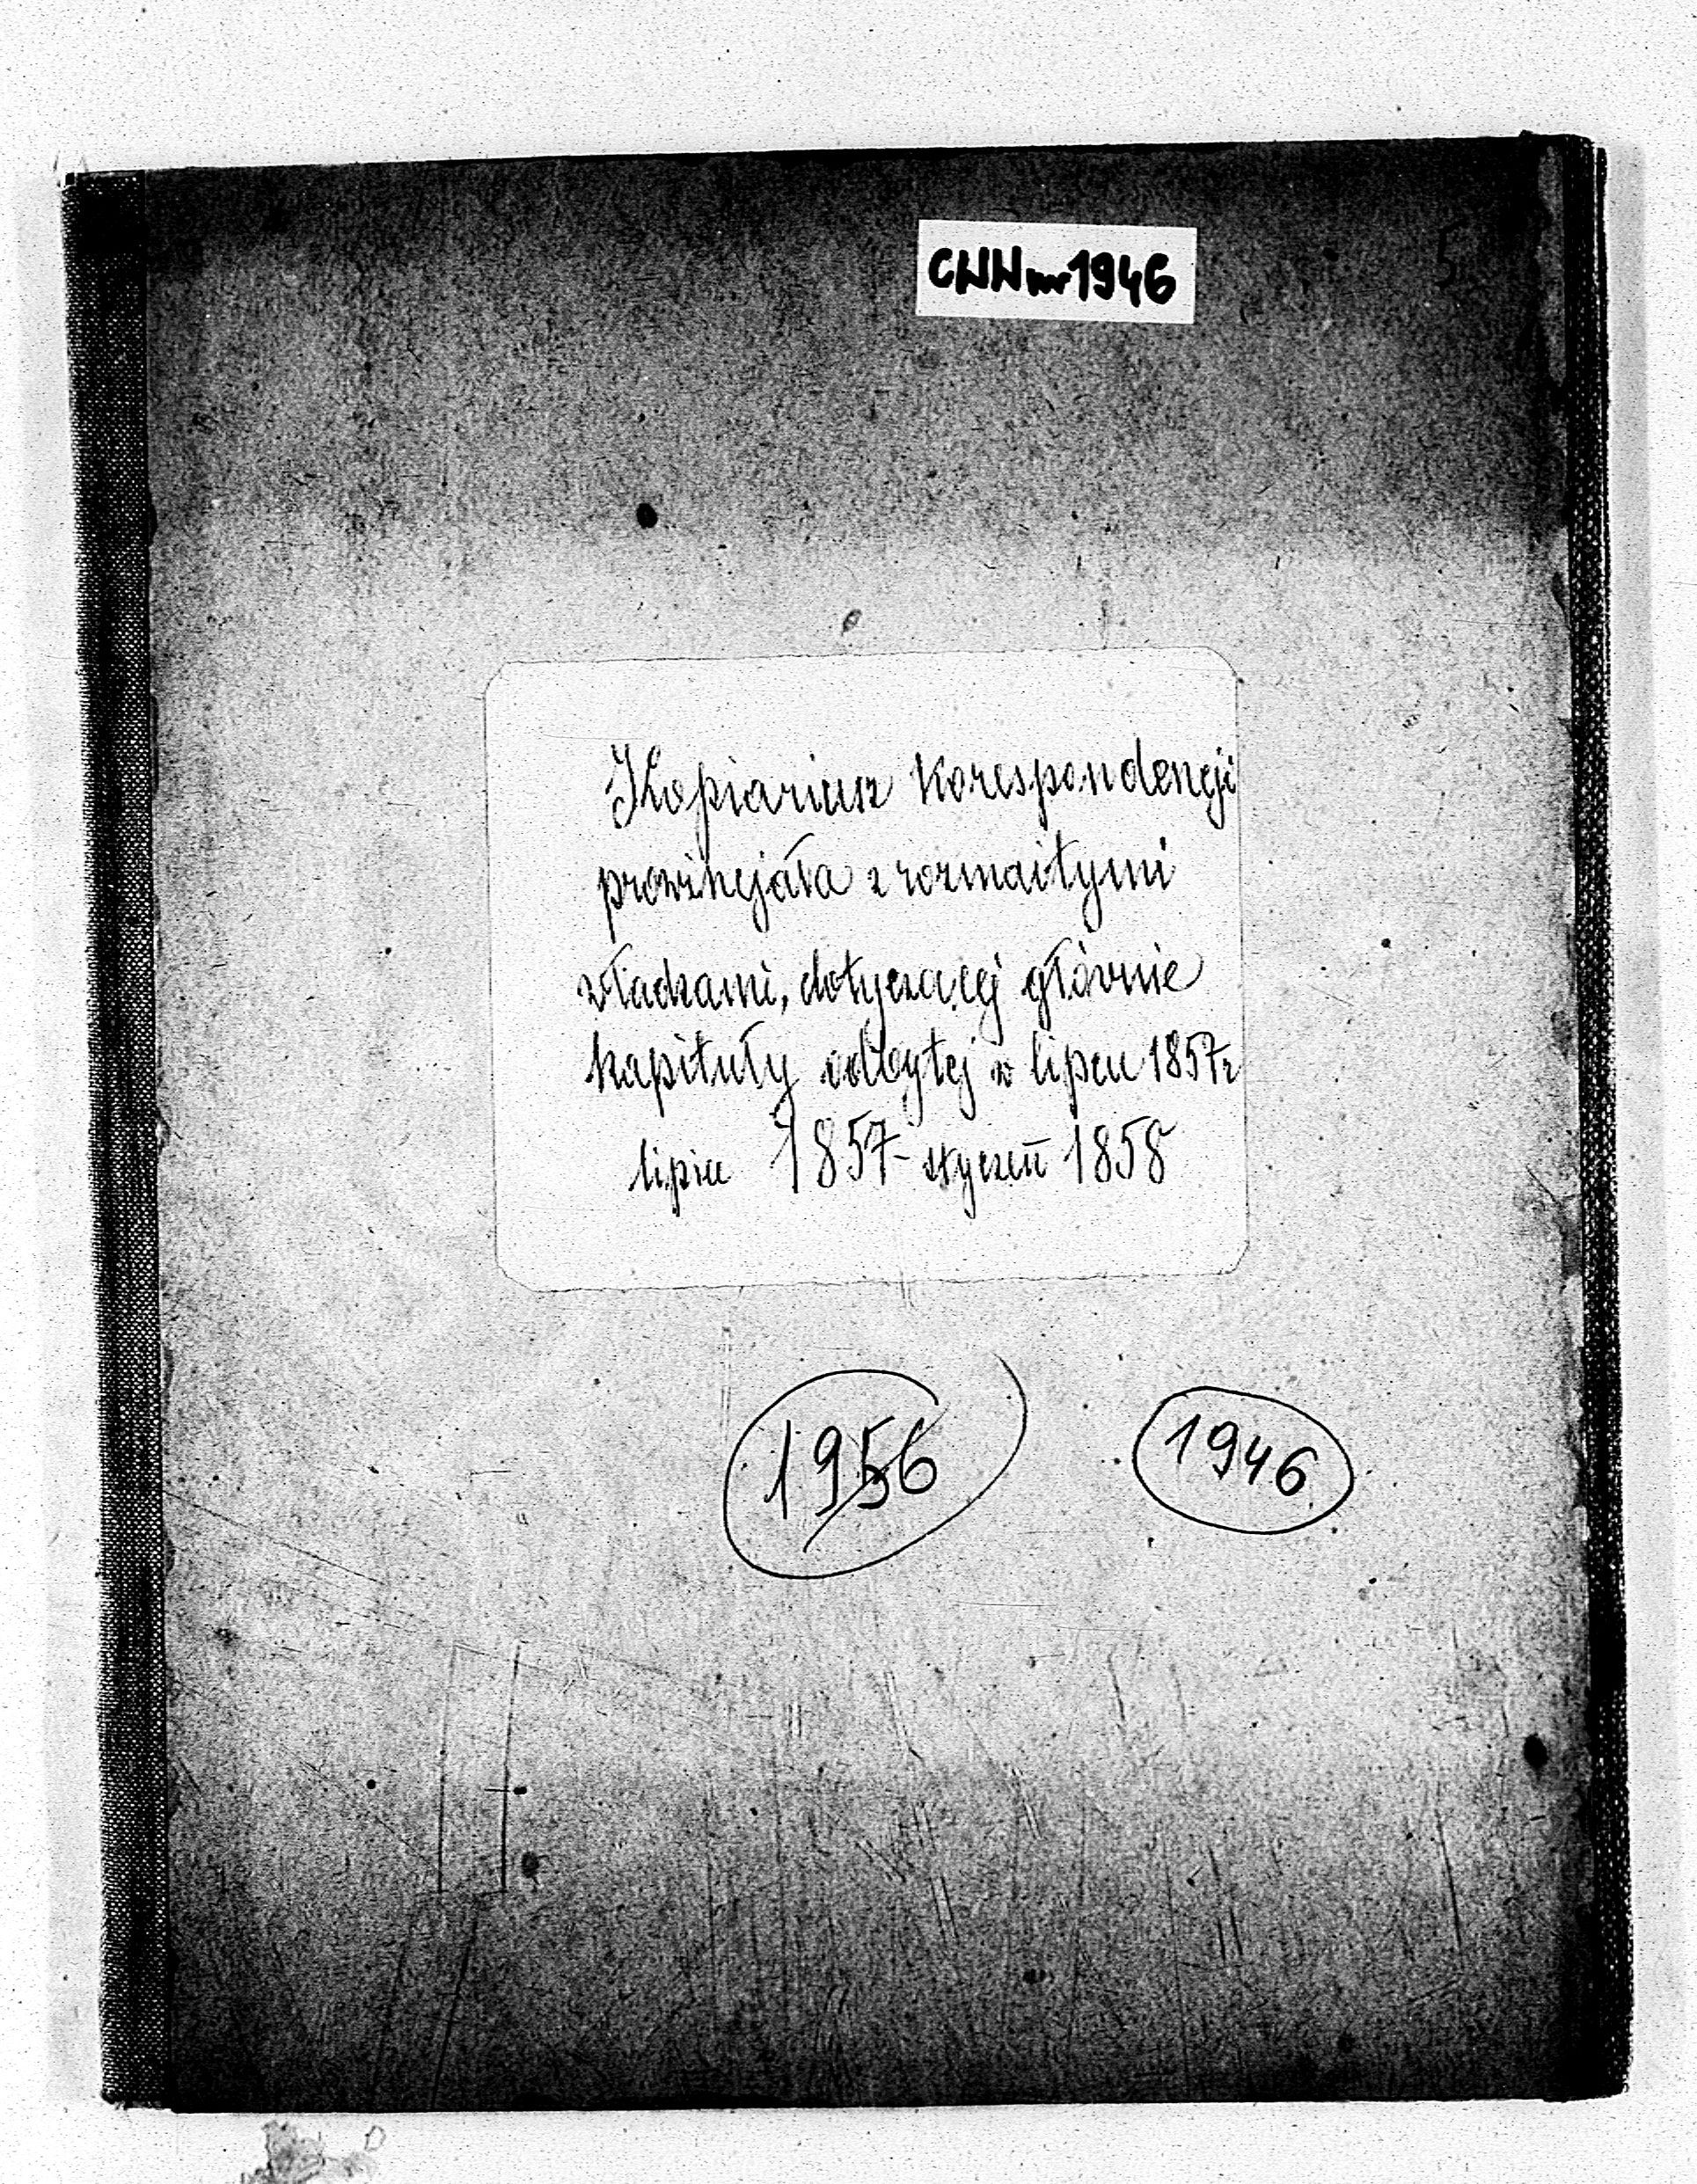 CWN nr 1946
Kopiariusz korespondencji
prowincjała z rozmaitymi
władzami, dotyczącej głównie
kapituły odbytej w lipcu 1857r
lipiec 1857 - styczeń 1858
1956
1946